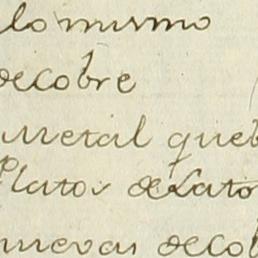 lo mismo
de cobre
metal queb
Platos de Lato
nuevas de cob